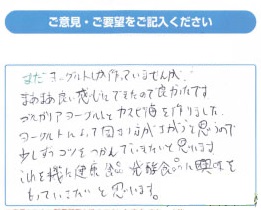 ご意見・ご要望をご記入ください
まだヨーグルトしか作っていませんが、
まあまあ良い感じにできたので良かったです
ブルガリアヨーグルトとカスピ海を作りました。
ヨーグルトによって固まり方がちがうと思うので
少しずつコツをつかんでいきたいと思います
これを機に健康 発酵食品に興味を
もっていきたいと思います。